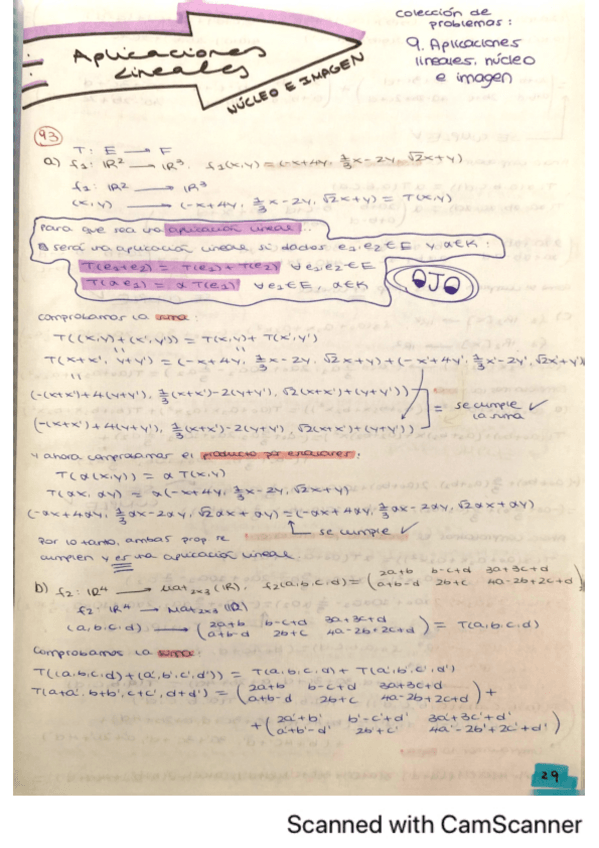 Aplicaciones
Lineales
NÚCLEO E IMAGEN
colección de
problemas:
9. Aplicaciones
lineales, núcleo
e imagen
93
T: E → F
a) f₁: IR² → IR³. f₁(x,y) = (-x+4y, 1/3 x - 2y, √2x+y)
f₁: IR² → IR³
(x,y) → (-x+4y, 1/3 x - 2y, √2x+y) = T(x,y)
Para que sea una aplicación lineal...
será una aplicación lineal si dados e₁,e₂∈E y α∈K:
T(e₁+e₂) = T(e₁) + T(e₂) ∀e₁,e₂∈E
T(αe₁) = αT(e₁) ∀e₁∈E, α∈K
OJO
comprobamos la suma:
T((x,y)+(x',y')) = T(x,y)+T(x',y')
T(x+x', y+y') = (-x+4y, 1/3 x-2y, √2x+y)+(-x'+4y', 1/3 x'-2y', √2x'+y')
(-(x+x')+4(y+y'), 1/3(x+x')-2(y+y'), √2(x+x')+(y+y'))
(-(x+x')+4(y+y'), 1/3(x+x')-2(y+y'), √2(x+x')+(y+y'))
= se cumple ✓
la suma
y ahora comprobamos el producto por escalares:
T(α(x,y)) = αT(x,y)
T(αx, αy) = α(-x+4y, 1/3 x-2y, √2x+y)
(-αx+4αy, 1/3 αx-2αy, √2αx+αy) = (-αx+4αy, 1/3 αx-2αy, √2αx+αy)
se cumple ✓
por lo tanto, ambas prop se
cumplen y es una aplicación lineal
b) f₂: IR⁴ → Mat₂ₓ₃(IR). f₂(a,b,c,d) = (2a+b b-c+d 3a+3c+d
a+b-d 2b+c 4a-2b+2c+d)
f₂: IR⁴ → Mat₂ₓ₃(IR)
(a,b,c,d) → (2a+b b-c+d 3a+3c+d
a+b-d 2b+c 4a-2b+2c+d) = T(a,b,c,d)
Comprobamos la suma:
T((a,b,c,d)+(a',b',c',d')) = T(a,b,c,d)+T(a',b',c',d')
T(a+a', b+b', c+c', d+d') = (2a+b b-c+d 3a+3c+d
a+b-d 2b+c 4a-2b+2c+d) +
+(2a'+b' b'-c'+d' 3a'+3c'+d'
a'+b'-d' 2b'+c' 4a'-2b'+2c'+d')
29
Scanned with CamScanner